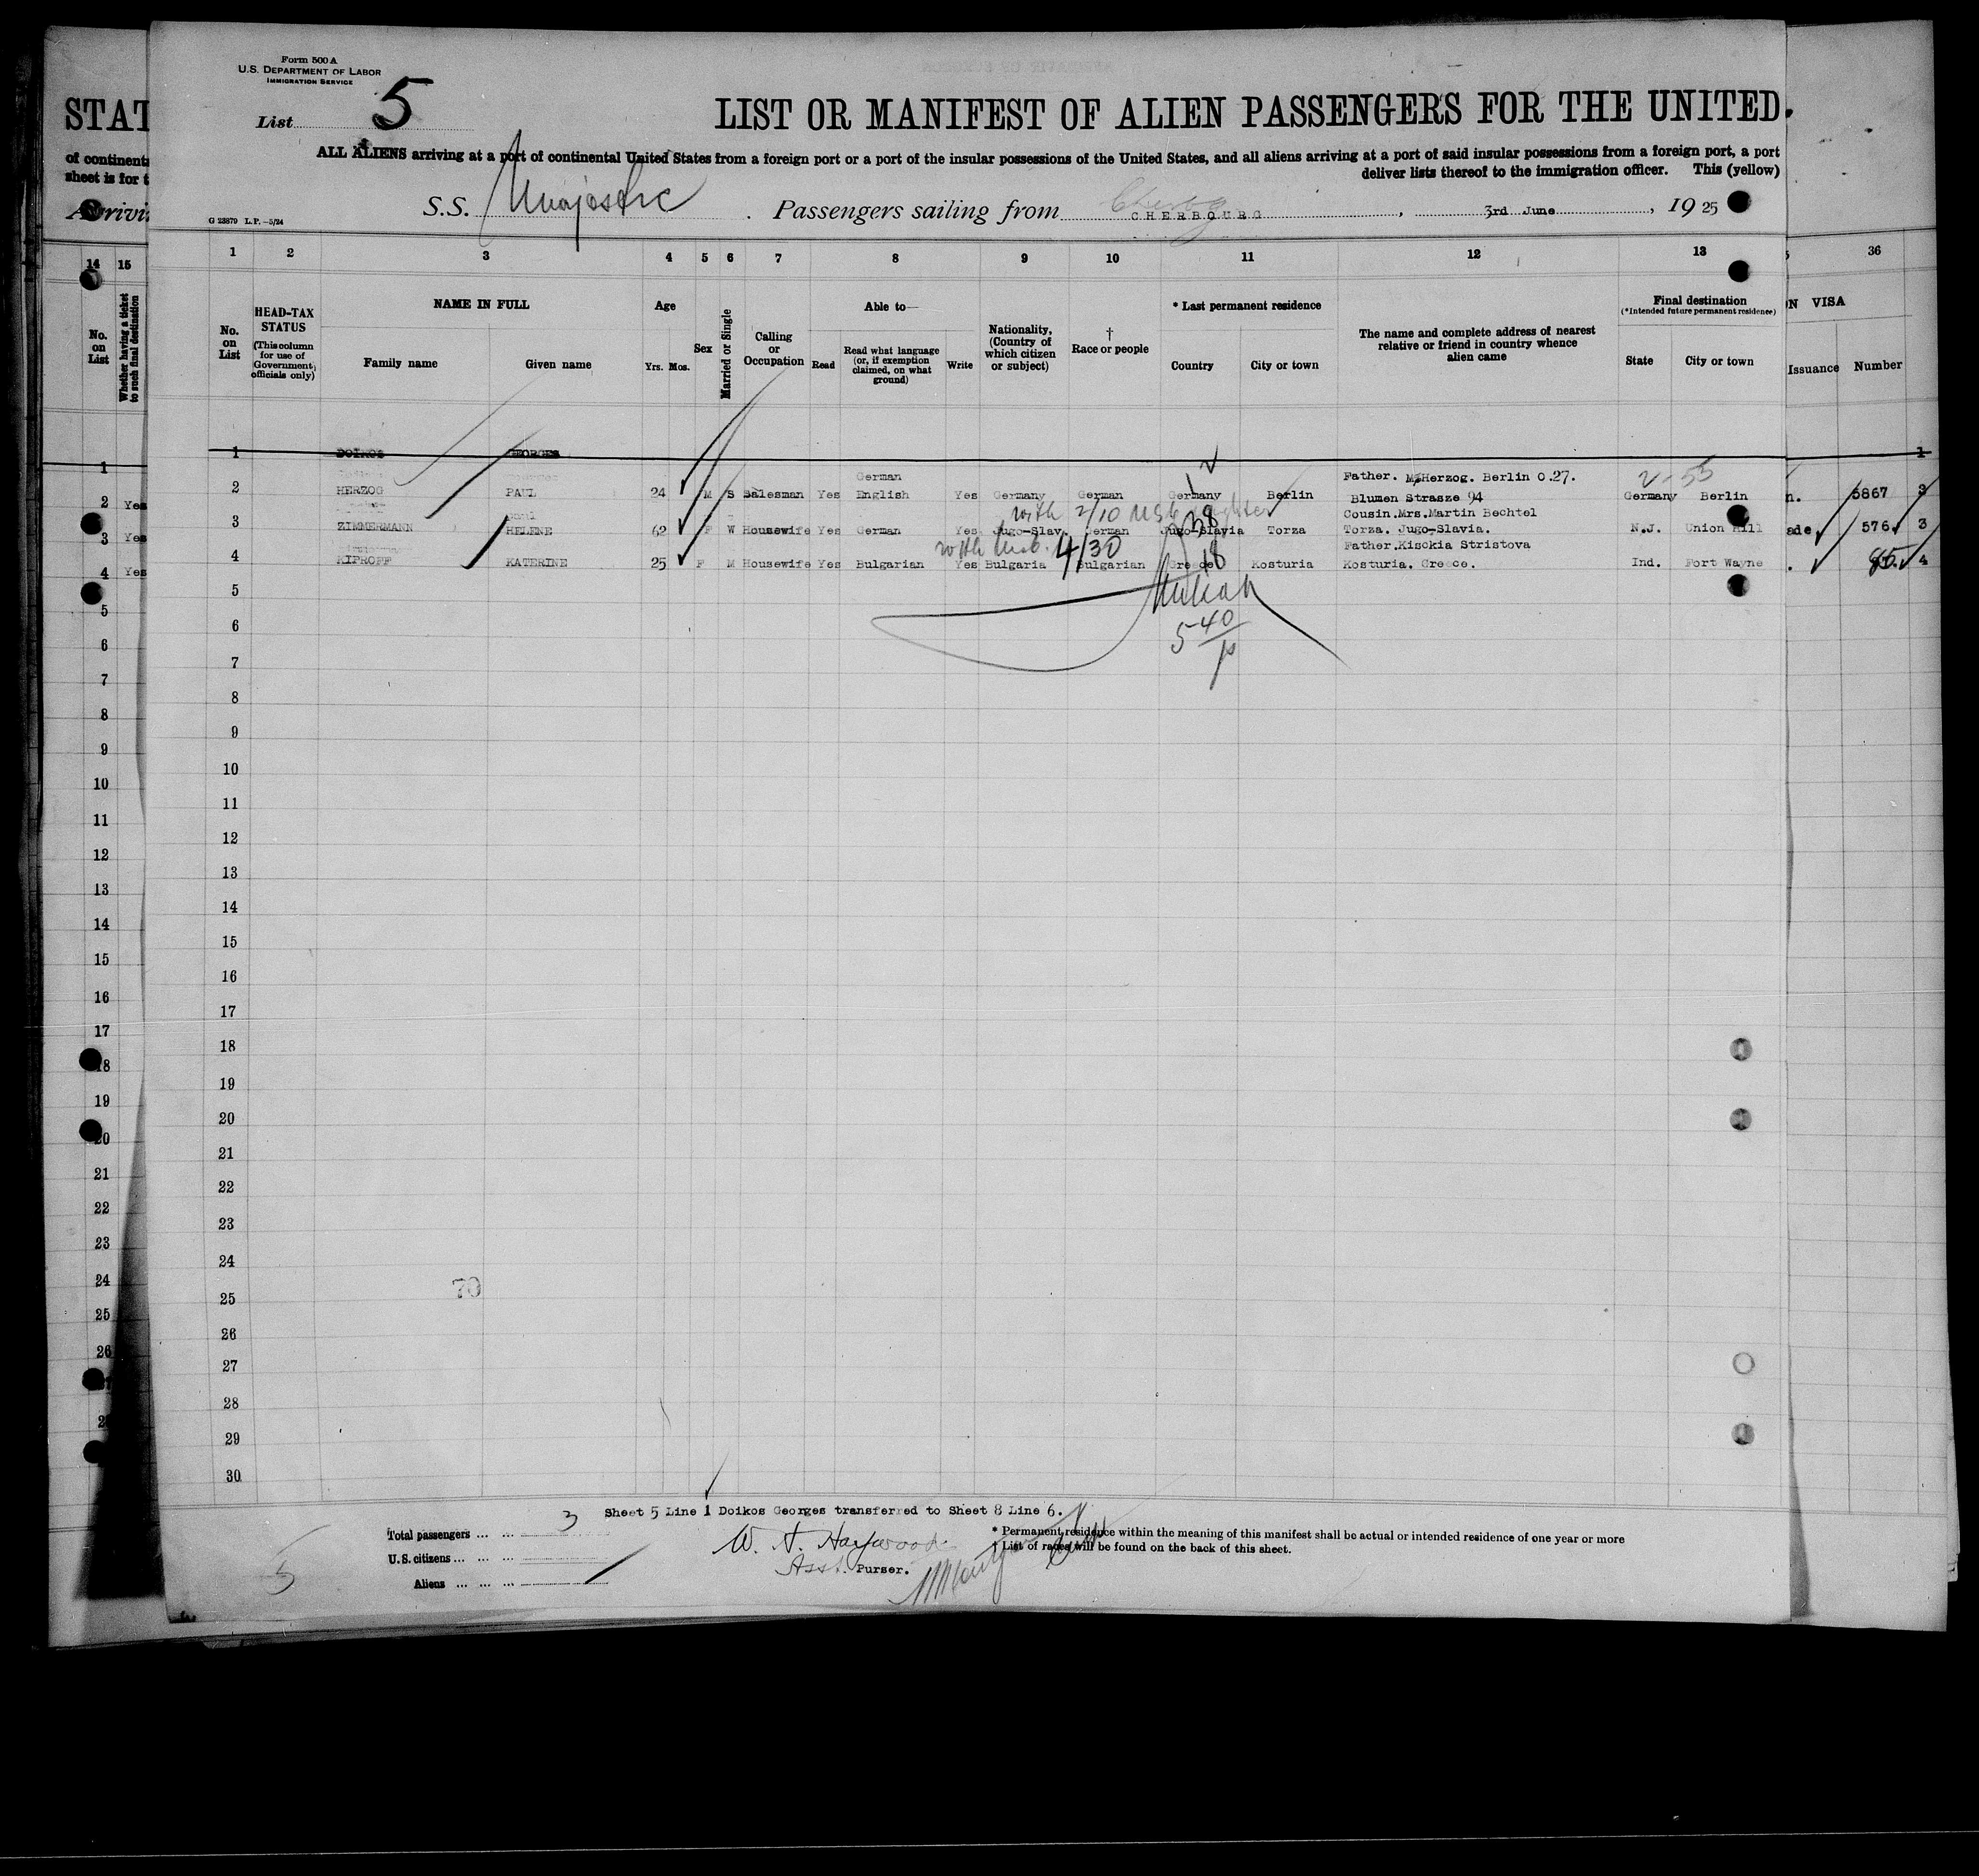 Form 500 A
U.S. DEPARTMENT OF LABOR
IMMIGRATION SERVICE
List 5
STAT
LIST OR MANIFEST OF ALIEN PASSENGERS FOR THE UNITED
of continent
sheet is for t
ALL ALIENS arriving at a port of continental United States from a foreign port or a port of the insular possessions of the United States, and all aliens arriving at a port of said insular possessions from a foreign port, a port
deliver lists thereof to the immigration officer. This (yellow)
Arrivi
G 23879 L.P.—5/24
S.S. Majestic. Passengers sailing from CHERBOURG, 3rd June, 1925
14 15 1 2 3 4 5 6 7 8 9 10 11 12 13 36
No. on List
Whether having a ticket to such final destination
No. on List
HEAD-TAX STATUS
(This column for use of Government officials only)
NAME IN FULL
Family name Given name
Age
Yrs. Mos.
Sex
Married or Single
Calling or Occupation
Able to—
Read
Read what language (or, if exemption claimed, on what ground)
Write
Nationality, (Country of which citizen or subject)
† Race or people
* Last permanent residence
Country City or town
The name and complete address of nearest relative or friend in country whence alien came
Final destination
(*Intended future permanent residence)
State City or town
N VISA
Issuance Number
1 DOIKOS GEORGES 1
Father. M. Herzog. Berlin O.27. 2-55
German
2 Yes 2 HERZOG PAUL 24 M S Salesman Yes English Yes Germany German Germany Berlin Blumen Strasze 94 Germany Berlin n. 5867 3
with 2/10 USC daughter
Cousin.Mrs.Martin Bechtel
3 Yes 3 ZIMMERMANN HELENE 62 F W Housewife Yes German Yes Jugo-Slav. German Jugo-Slavia Torza Torza. Jugo-Slavia. N.J. Union Hill ade 576 3
4/30
Father.Kisokia Stristova
4 Yes 4 KIPROFF KATERINE 25 F M Housewife Yes Bulgarian Yes Bulgaria Bulgarian Greece Kosturia Kosturia. Greece. Ind. Fort Wayne . 85. 4
5
5 6
6 7
7 8
8 9
9 10
10 11
11 12
12 13
13 14
14 15
15 16
16 17
17 18
18 19
19 20
20 21
21 22
22 23
23 24
24 25 70
25 26
26 27
28
29
30
Sheet 5 Line 1 Doikos Georges transferred to Sheet 8 Line 6.
Total passengers ... ... 3
U.S. citizens ... ... ...
Aliens ... ... ...
5
W. H. Haywood
Asst. Purser.
* Permanent residence within the meaning of this manifest shall be actual or intended residence of one year or more
† List of races will be found on the back of this sheet.